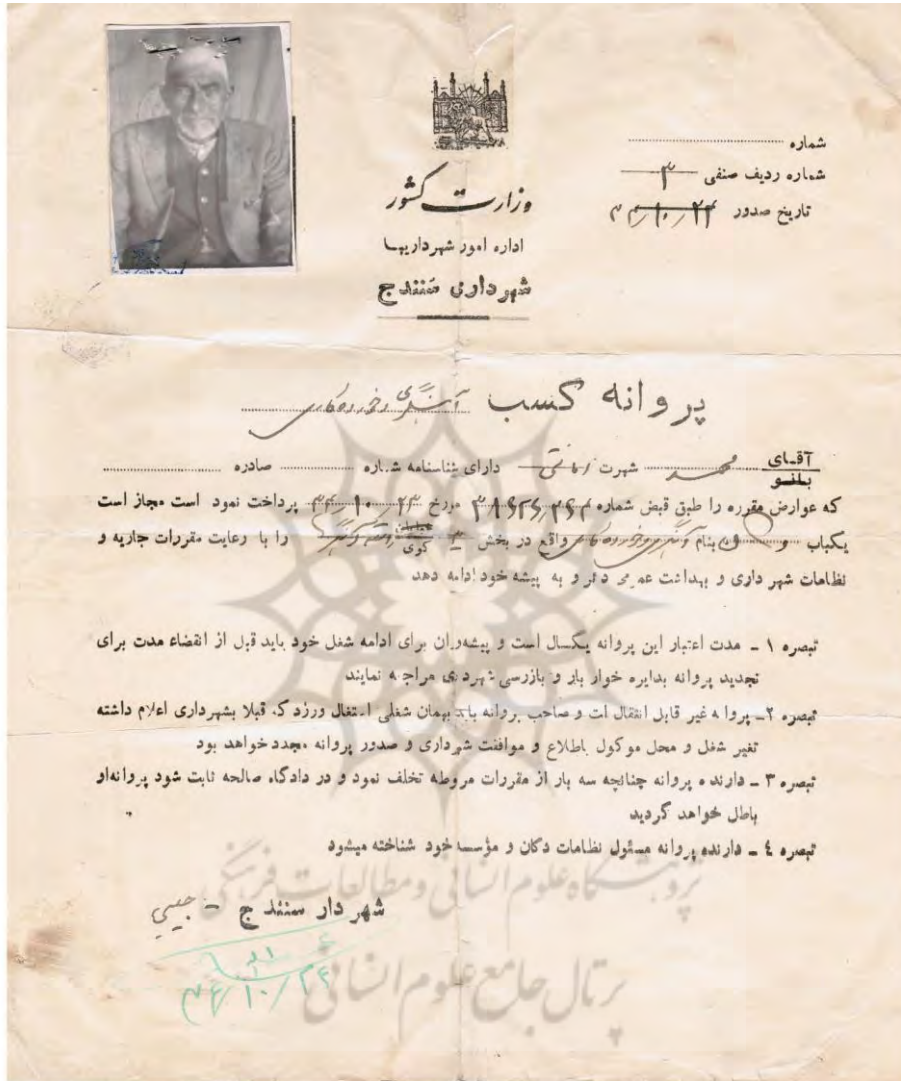 شماره
شماره ردیف صنفی ۳
تاریخ صدور ۲۴/۱۰/۳۴
وزارت کشور
اداره امور شهرداریها
شهرداری سنندج
پروانه کسب آهنگری و خورده‌کاری
آقای محمد شهرت دارای شناسنامه شماره صادره
بانو
که عوارض مقرره را طبق قبض شماره مورخ پرداخت نمود است مجاز است
یکباب و بنام واقع در بخش کوی را با رعایت مقررات جاریه و
نظامات شهرداری و بهداشت عمومی دائر و به پیشه خود ادامه دهد
تبصره ۱ - مدت اعتبار این پروانه یکسال است و پیشه‌وران برای ادامه شغل خود باید قبل از انقضاء مدت برای
تجدید پروانه بدایره خوار بار و بازرسی شهرداری مراجعه نمایند
تبصره ۲ - پروانه غیر قابل انتقال است و صاحب پروانه باید بهمان شغلی اشتغال ورزد که قبلا بشهرداری اعلام داشته
تغیر شغل و محل موکول باطلاع و موافقت شهرداری و صدور پروانه مجدد خواهد بود
تبصره ۳ - دارنده پروانه چنانچه سه بار از مقررات مربوطه تخلف نمود و در دادگاه صالحه ثابت شود پروانه او
باطل خواهد گردید
تبصره ٤ - دارنده پروانه مسئول نظامات دکان و مؤسسه خود شناخته میشود
شهردار سنندج - حبیبی
۳۴/۱۰/۲۴
پژوهشگاه علوم انسانی و مطالعات فرهنگی
پرتال جامع علوم انسانی